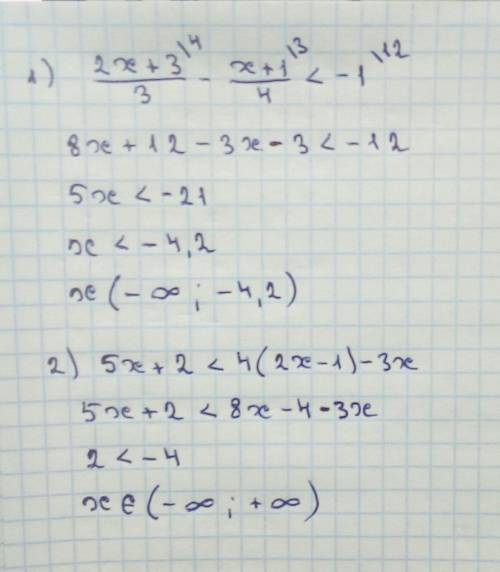 1) (2x+3)/3 \4 - (x+1)/4 \3 < -1 \12
8x + 12 - 3x - 3 < -12
5x < -21
x < -4,2
x (-∞; -4,2)
2) 5x + 2 < 4(2x-1) - 3x
5x + 2 < 8x - 4 - 3x
2 < -4
x ∈ (-∞; +∞)